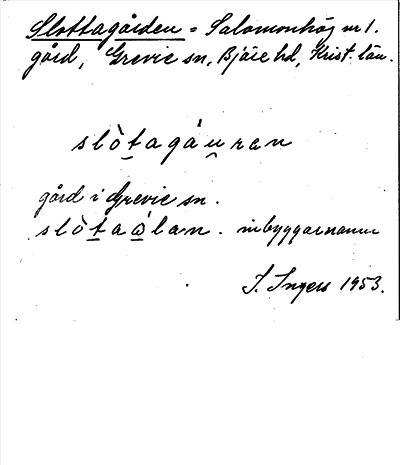 Slottagården = Salomonhög nr 1.
gård, Grevie sn, Bjäre hd, Krist. län.
slò̀tagáu̯ran
gård i Grevie sn.
slòtaὼlan. inbyggarnamn
I. Ingers 1953.